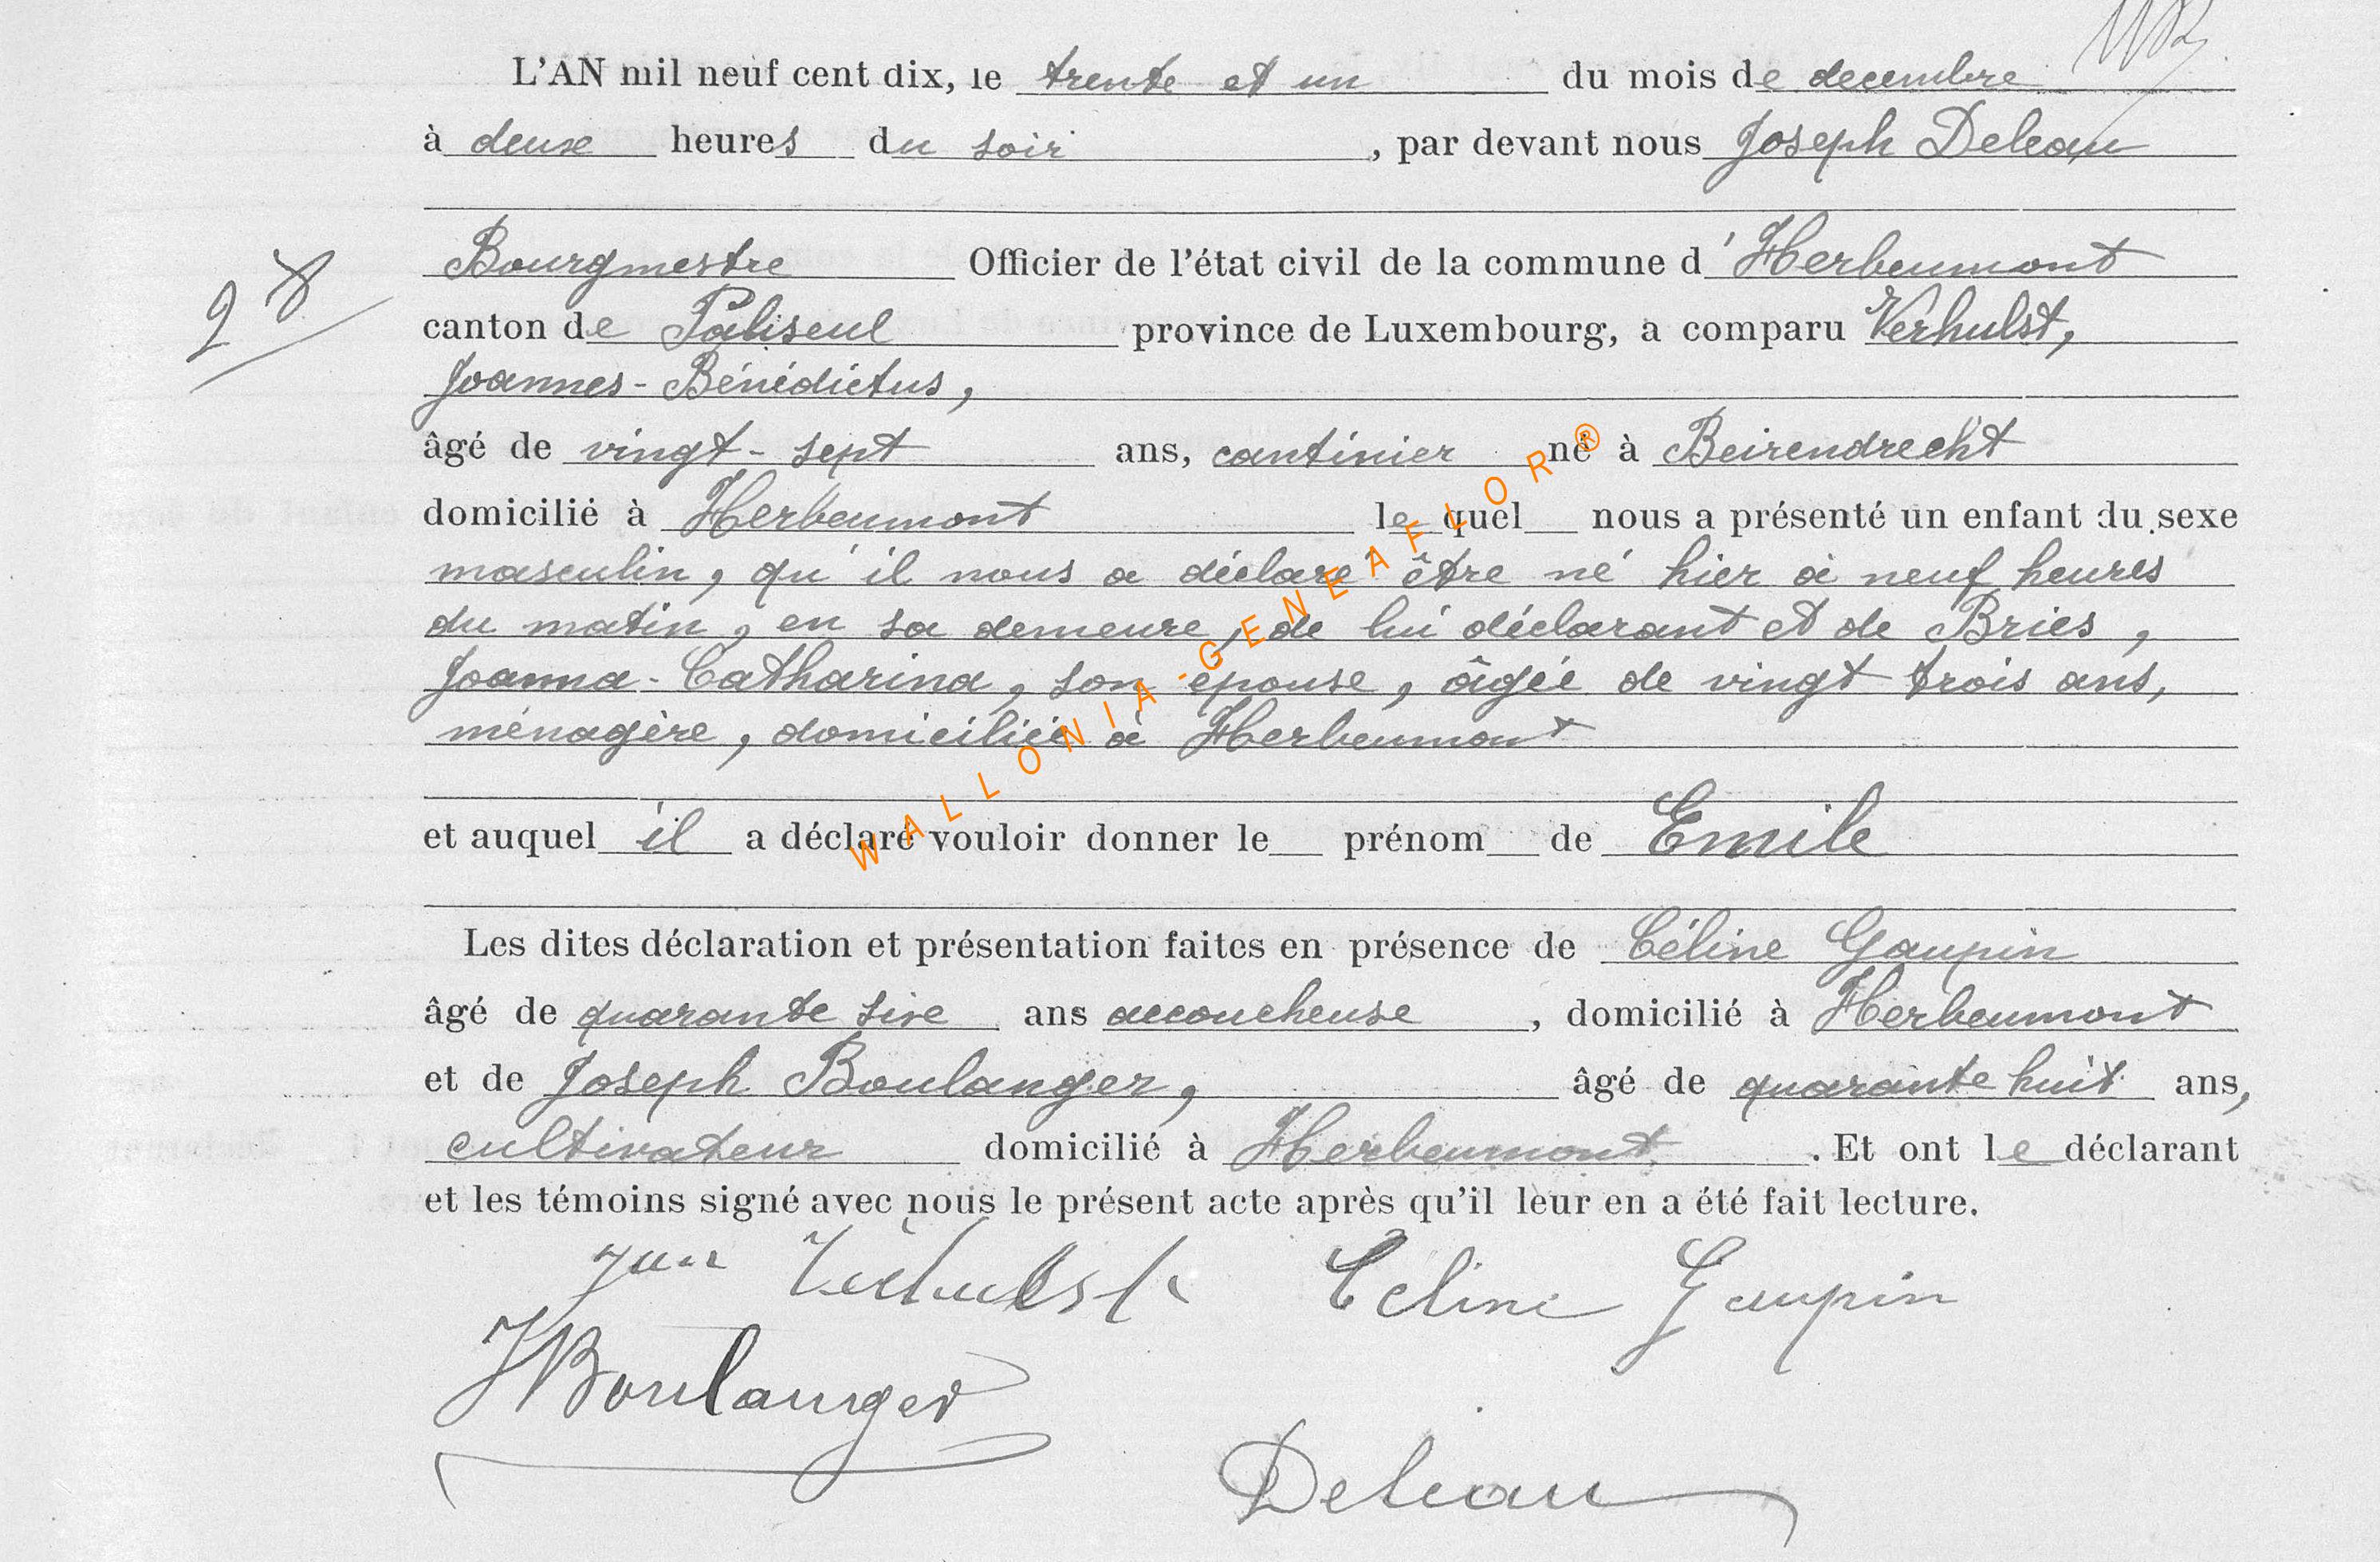 L'AN mil neuf cent dix, le trente et un du mois de decembre
à deux heures du soir, par devant nous Joseph Deleau
Bourgmestre Officier de l'état civil de la commune d'Herbeumont
28
canton de Paliseul province de Luxembourg, a comparu Verhulst,
Joannes-Bénédictus,
âgé de vingt-sept ans, cantinier né à Beirendrecht
domicilié à Herbeumont lequel nous a présenté un enfant du sexe
masculin, qu'il nous a déclaré être né hier à neuf heures
du matin, en sa demeure, de lui déclarant et de Bries,
Joanna-Catharina, son épouse, âgée de vingt trois ans,
ménagère, domiciliée à Herbeumont
et auquel il a déclaré vouloir donner le prénom de Emile
Les dites déclaration et présentation faites en présence de Céline Gaupin
âgé de quarante six ans accoucheuse, domicilié à Herbeumont
et de Joseph Boulanger, âgé de quarante huit ans,
cultivateur domicilié à Herbeumont. Et ont le déclarant
et les témoins signé avec nous le présent acte après qu'il leur en a été fait lecture.
Verhulst Celine Gaupin
JBoulanger
Deleau
WALLONIA-GENEAFLOR®